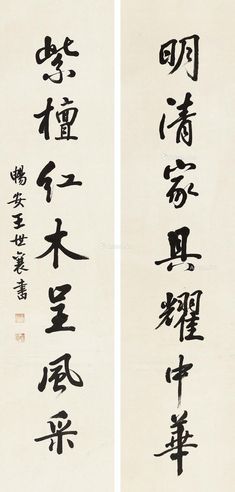 明清家具耀中華
紫檀红木呈風采
暢安王世襄書